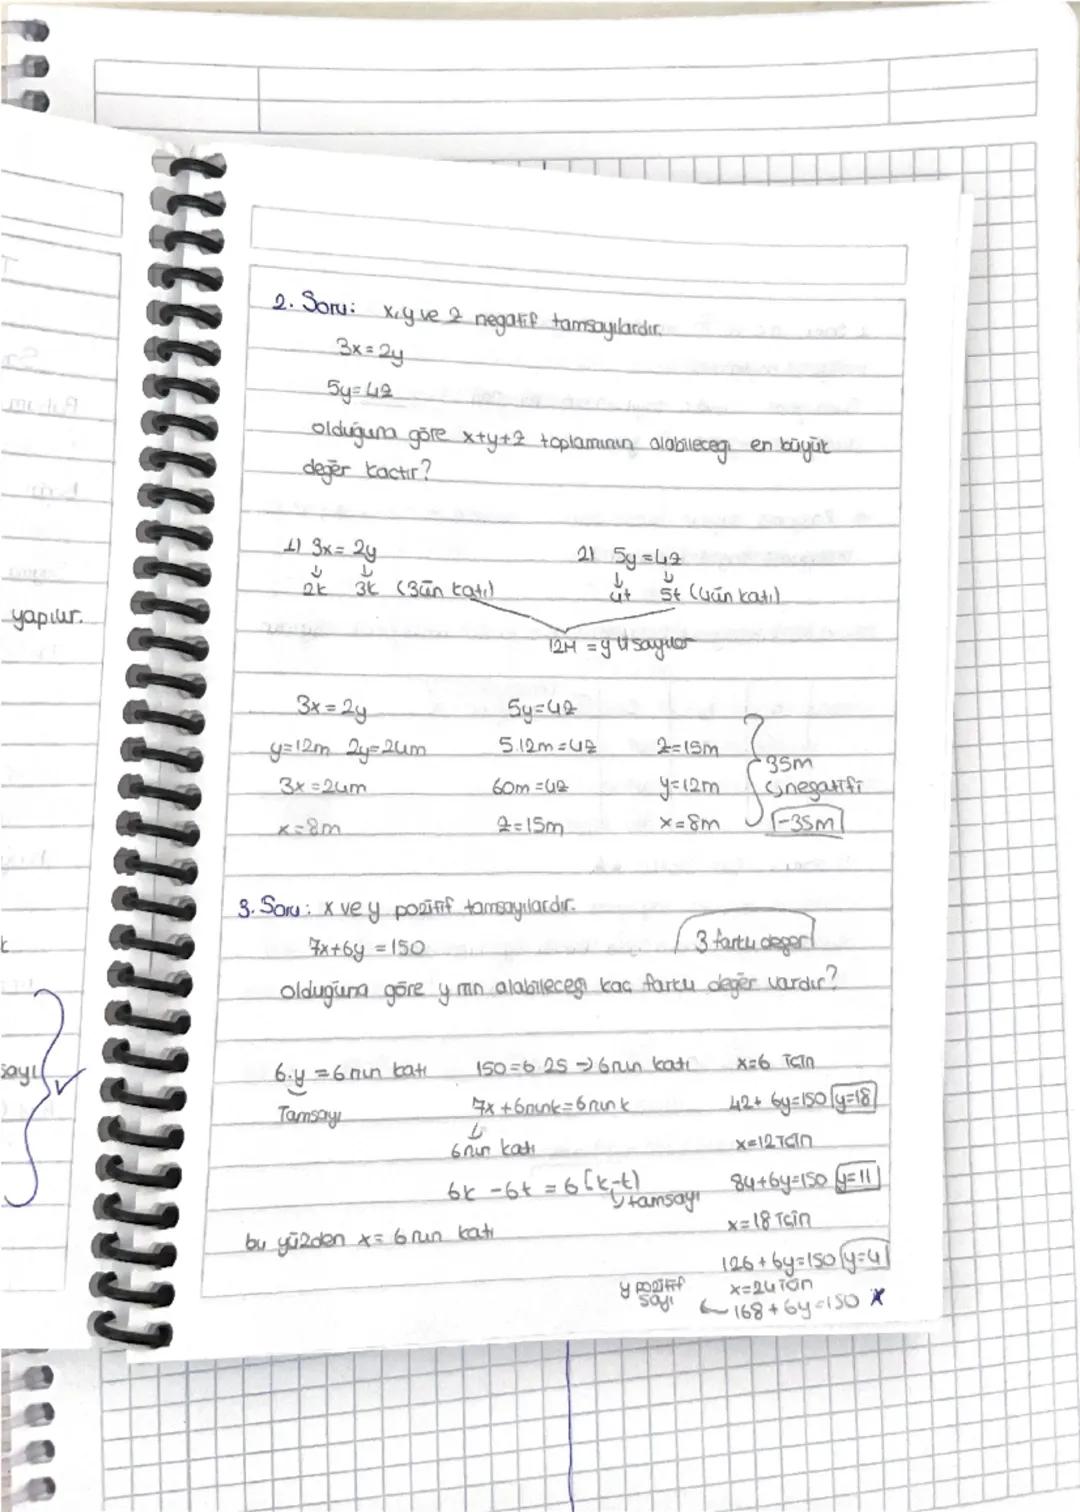 2. Soru: x,y ve z negatif tamsayılardır.
3x=2y
5y=4z
olduğuna göre x+y+z toplamının alabileceği en büyük
değer kaçtır?
1) 3x=2y
2k 3k (3ün katı)
2) 5y=4z
4t 5t (4ün katı)
12M = y li sayılar
3x=2y
y=12m 2y=24m
3x=24m
x=8m
5y=4z
5.12m=4z
60m=4z
z=15m
z=15m
y=12m
x=8m
35m
negatifi
-35m
3. Soru: x ve y pozitif tamsayılardır.
7x+6y=150
3 farklı değer
olduğuna göre y nin alabileceği kaç farklı değer vardır?
6.y = 6 nın katı
Tamsayı
150=6.25 → 6nın katı
7x+6nınk=6nın k
6nın katı
6k-6t = 6(k-t)
tamsayı
bu yüzden x= 6nın katı
x=6 için
42+6y=150 y=18
x=12 için
84+6y=150 y=11
x=18 için
126+6y=150 y=4
x=24 için
168+6y=150 X
y pozitif
sayı
yapılır.
sayı